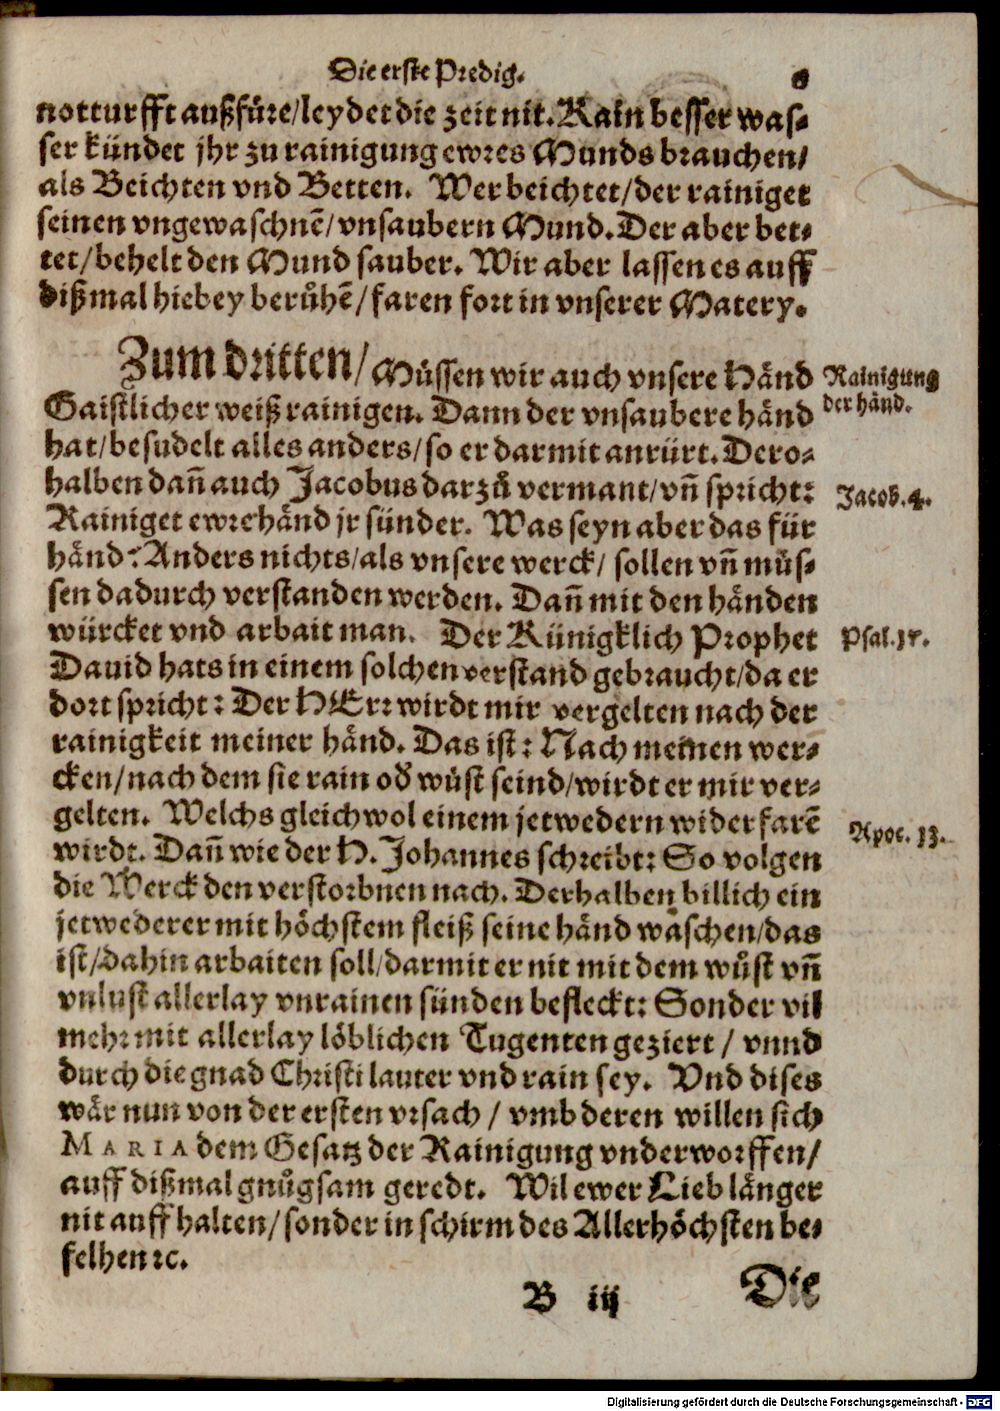 Die erste Predig. 6
notturfft außfüre/leydet die zeit nit. Kain besser was-
ser kündet jhr zu rainigung ewres Munds brauchen/
als Beichten vnd Betten. Wer beichtet/der rainiget
seinen vngewaschnē/vnsaubern Mund. Der aber bet-
tet/behelt den Mund sauber. Wir aber lassen es auff
dißmal hiebey berůhē/faren fort in vnserer Matery.
Zum dritten/Müssen wir auch vnsere Händ
Rainigung
der händ.
Gaistlicher weiß rainigen. Dann der vnsaubere händ
hat/besudelt alles anders/so er darmit anrürt. Dero-
halben dañ auch Jacobus darzů vermant/vñ spricht:
Jacob. 4.
Rainiget ewre händ jr sünder. Was seyn aber das für
händ? Anders nichts/als vnsere werck/ sollen vñ müs-
sen dadurch verstanden werden. Dañ mit den händen
würcket vnd arbait man. Der Künigklich Prophet
Psal. 17.
Dauid hats in einem solchen verstand gebraucht/da er
dort spricht: Der HErr wirdt mir vergelten nach der
rainigkeit meiner händ. Das ist: Nach meinen wer-
cken/nach dem sie rain oď wůst seind/wirdt er mir ver-
gelten. Welchs gleichwol einem jetwedern widerfarē
wirdt. Dañ wie der H. Johannes schreibt: So volgen
Apoc. 13.
die Werck den verstorbnen nach. Derhalben billich ein
jetwederer mit höchstem fleiß seine händ waschen/das
ist/dahin arbaiten soll/darmit er nit mit dem wůst vñ
vnlust allerlay vnrainen sünden befleckt: Sonder vil
mehr mit allerlay löblichen Tugenten geziert / vnnd
durch die gnad Christi lauter vnd rain sey. Vnd dises
wär nun von der ersten vrsach / vmb deren willen sich
MARIA dem Gesatz der Rainigung vnderworffen/
auff dißmal gnůgsam geredt. Wil ewer Lieb länger
nit auff halten/sonder in schirm des Allerhöchsten be-
felhen ꝛc.
B iij Die
Digitalisierung gefördert durch die Deutsche Forschungsgemeinschaft - DFG